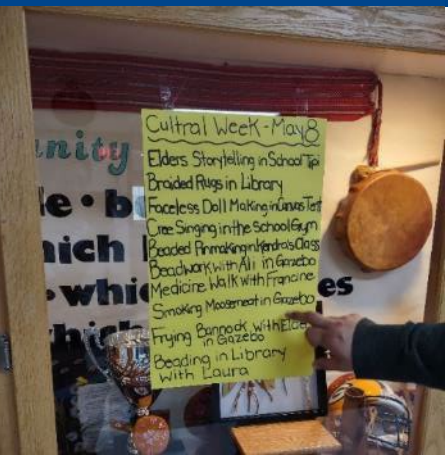 Cultral Week - May 8
Elders Storytelling in School Tipi
Braided Rugs in Library
Faceless Doll Making in Canvas Tent
Cree Singing in the School Gym
Beaded Pinmaking in Kendra's Class
Beadwork with Ali in Gazebo
Medicine Walk with Francine
Smoking Moosemeat in Gazebo
Frying Bannock with Elder
in Gazebo
Beading in Library
with Laura
nity
le • b
ich
es
• whic
which